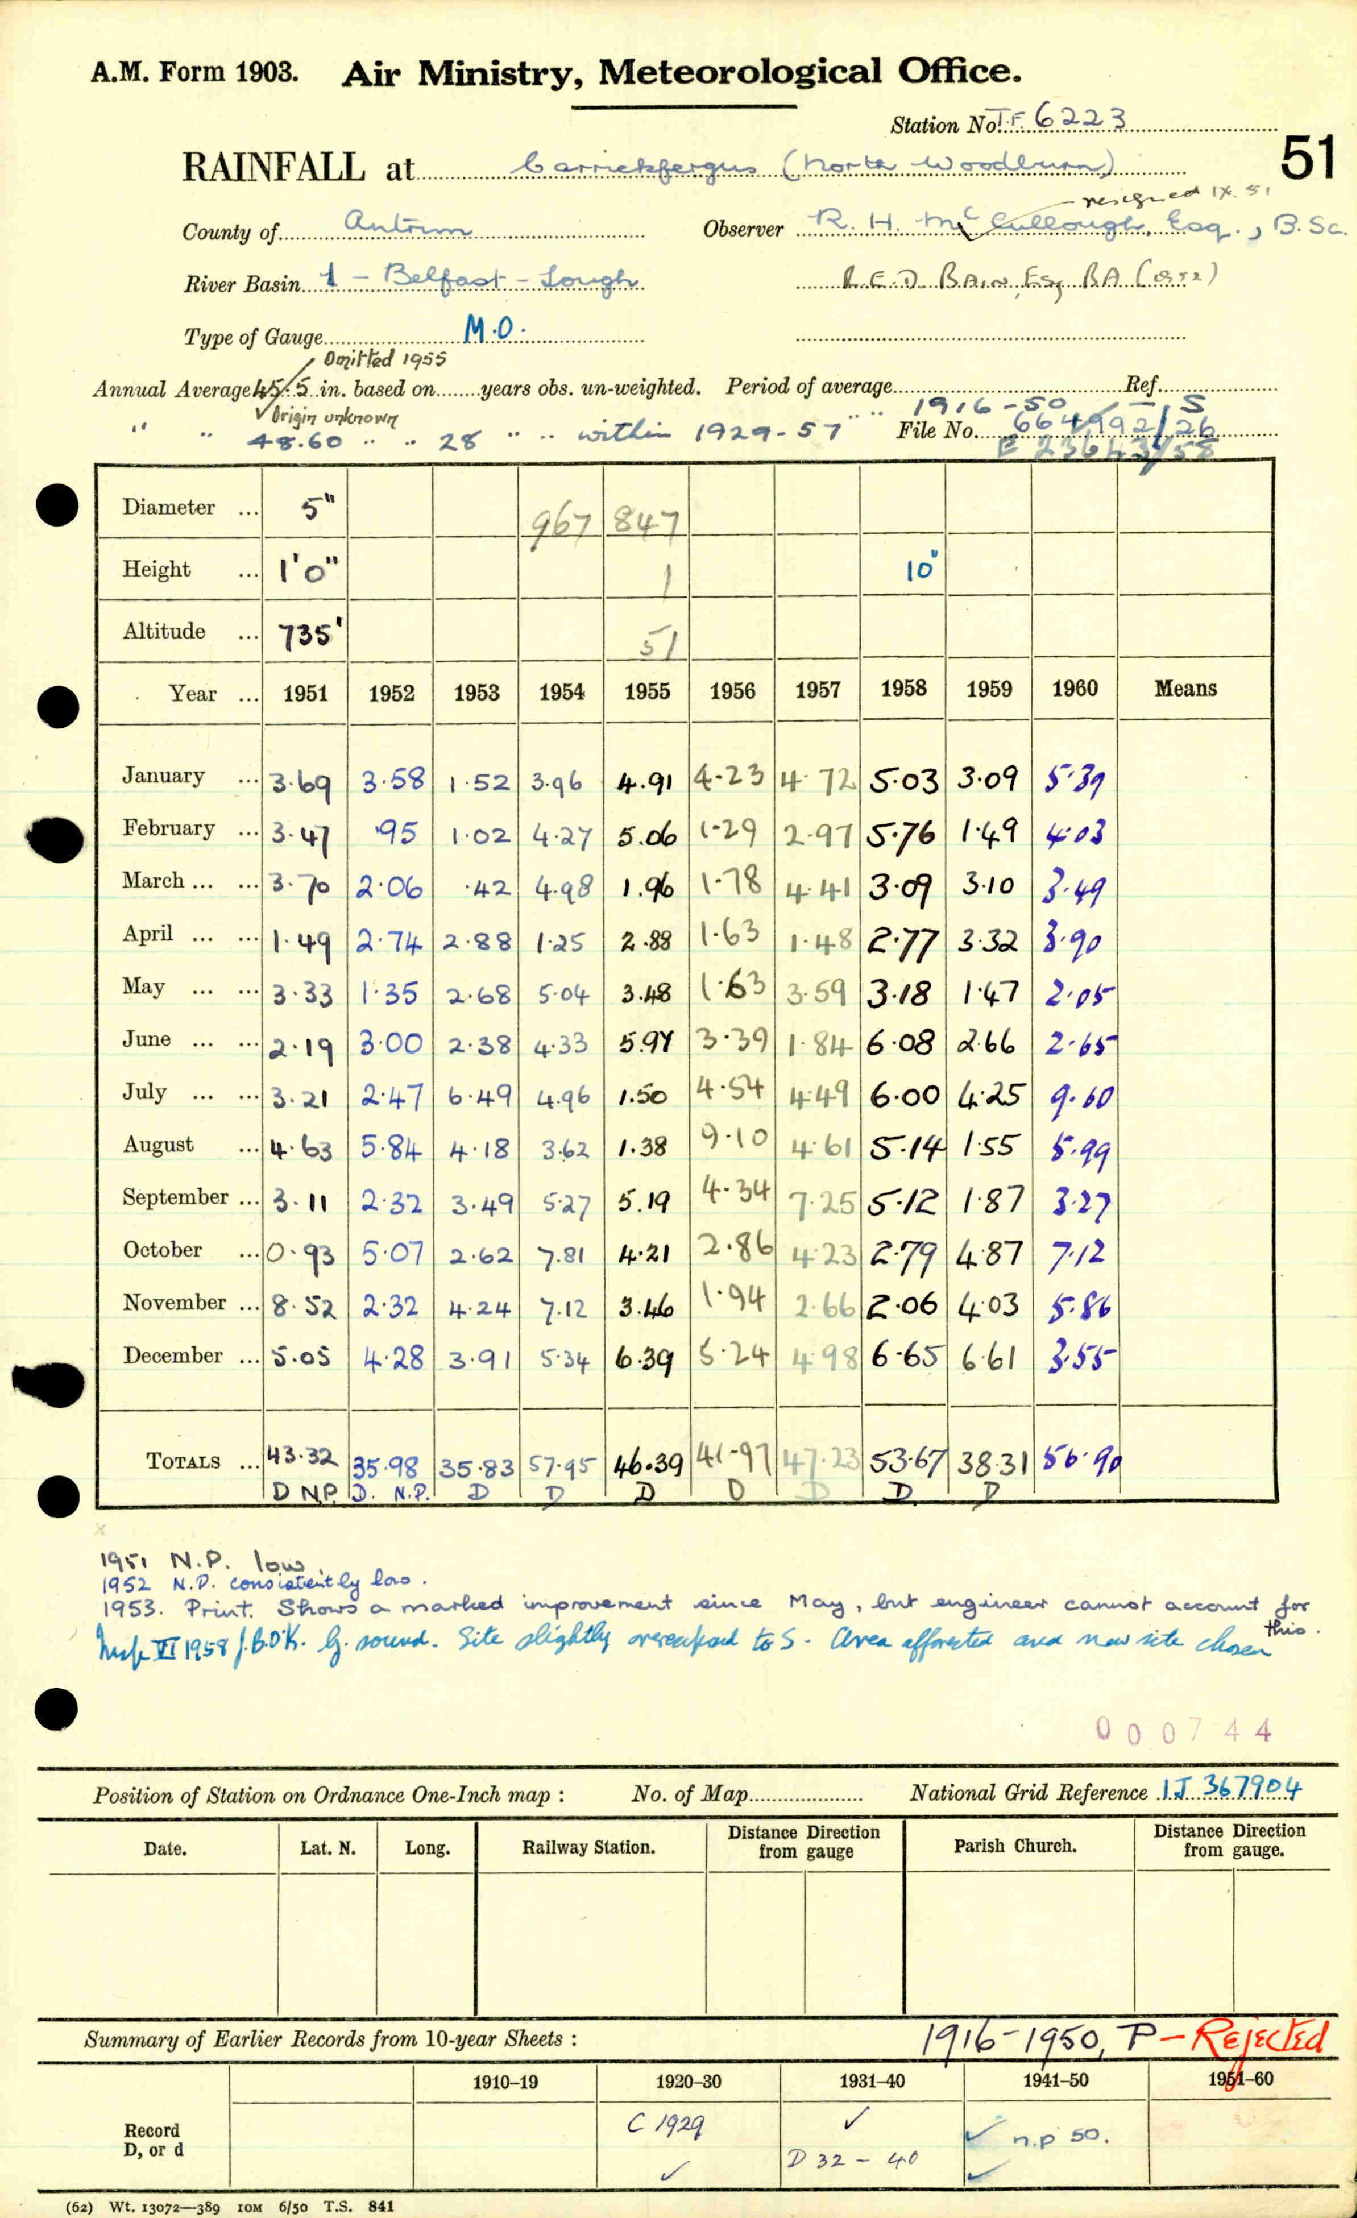 A.M. Form 1903. Air Ministry, Meteorological Office.
Station No. I.F. 6223
51
RAINFALL at Carrickfergus (North Woodburn)
resigned IX. 51
County of Antrim Observer R. H. McCullough, Esq., B.Sc.
River Basin 1 - Belfast - Lough R.E.D. BAIN, Esq BA (1952)
Type of Gauge M.O.
Omitted 1955
Annual Average 45.5 in. based on years obs. un-weighted. Period of average Ref.
Origin unknown 1916-50 S
" " 48.60 " " 28 " " within 1929-57 File No. 664992/26
E 23643/58
Diameter ... 5" 967 847
Height ... 1'0" 1 10"
Altitude ... 735' 51
Year ... 1951 1952 1953 1954 1955 1956 1957 1958 1959 1960 Means
January ... 3.69 3.58 1.52 3.96 4.91 4.23 4.72 5.03 3.09 5.39
February ... 3.47 .95 1.02 4.27 5.06 1.29 2.97 5.76 1.49 4.03
March ... ... 3.70 2.06 .42 4.98 1.96 1.78 4.41 3.09 3.10 3.49
April ... ... 1.49 2.74 2.88 1.25 2.88 1.63 1.48 2.77 3.32 3.90
May ... ... 3.33 1.35 2.68 5.04 3.48 1.63 3.59 3.18 1.47 2.05
June ... ... 2.19 3.00 2.38 4.33 5.97 3.39 1.84 6.08 2.66 2.65
July ... ... 3.21 2.47 6.49 4.96 1.50 4.54 4.49 6.00 4.25 9.60
August ... 4.63 5.84 4.18 3.62 1.38 9.10 4.61 5.14 1.55 5.99
September ... 3.11 2.32 3.49 5.27 5.19 4.34 7.25 5.12 1.87 3.27
October ... 0.93 5.07 2.62 7.81 4.21 2.86 4.23 2.79 4.87 7.12
November ... 8.52 2.32 4.24 7.12 3.46 1.94 2.66 2.06 4.03 5.86
December ... 5.05 4.28 3.91 5.34 6.39 5.24 4.98 6.65 6.61 3.55
TOTALS ... 43.32 35.98 35.83 57.95 46.39 41.97 47.23 53.67 38.31 56.90
D N.P. D. N.P. D D D D D D D
x
1951 N.P. low
1952 N.P. consistently low.
1953. Print. Shows a marked improvement since May, but engineer cannot account for
this.
Insp VI 1958 J.B.O'K. G. sound. Site slightly overexposed to S. Area afforested and new site chosen
000744
Position of Station on Ordnance One-Inch map : No. of Map National Grid Reference IJ 367904
Date. Lat. N. Long. Railway Station. Distance Direction from gauge Parish Church. Distance Direction from gauge.
Summary of Earlier Records from 10-year Sheets : 1916-1950, P - REJECTED
1910-19 1920-30 1931-40 1941-50 1951-60
Record C 1929 ✓ ✓ n.p 50.
D, or d ✓ D 32 - 40 ✓
(62) Wt. 13072—389 10M 6/50 T.S. 841